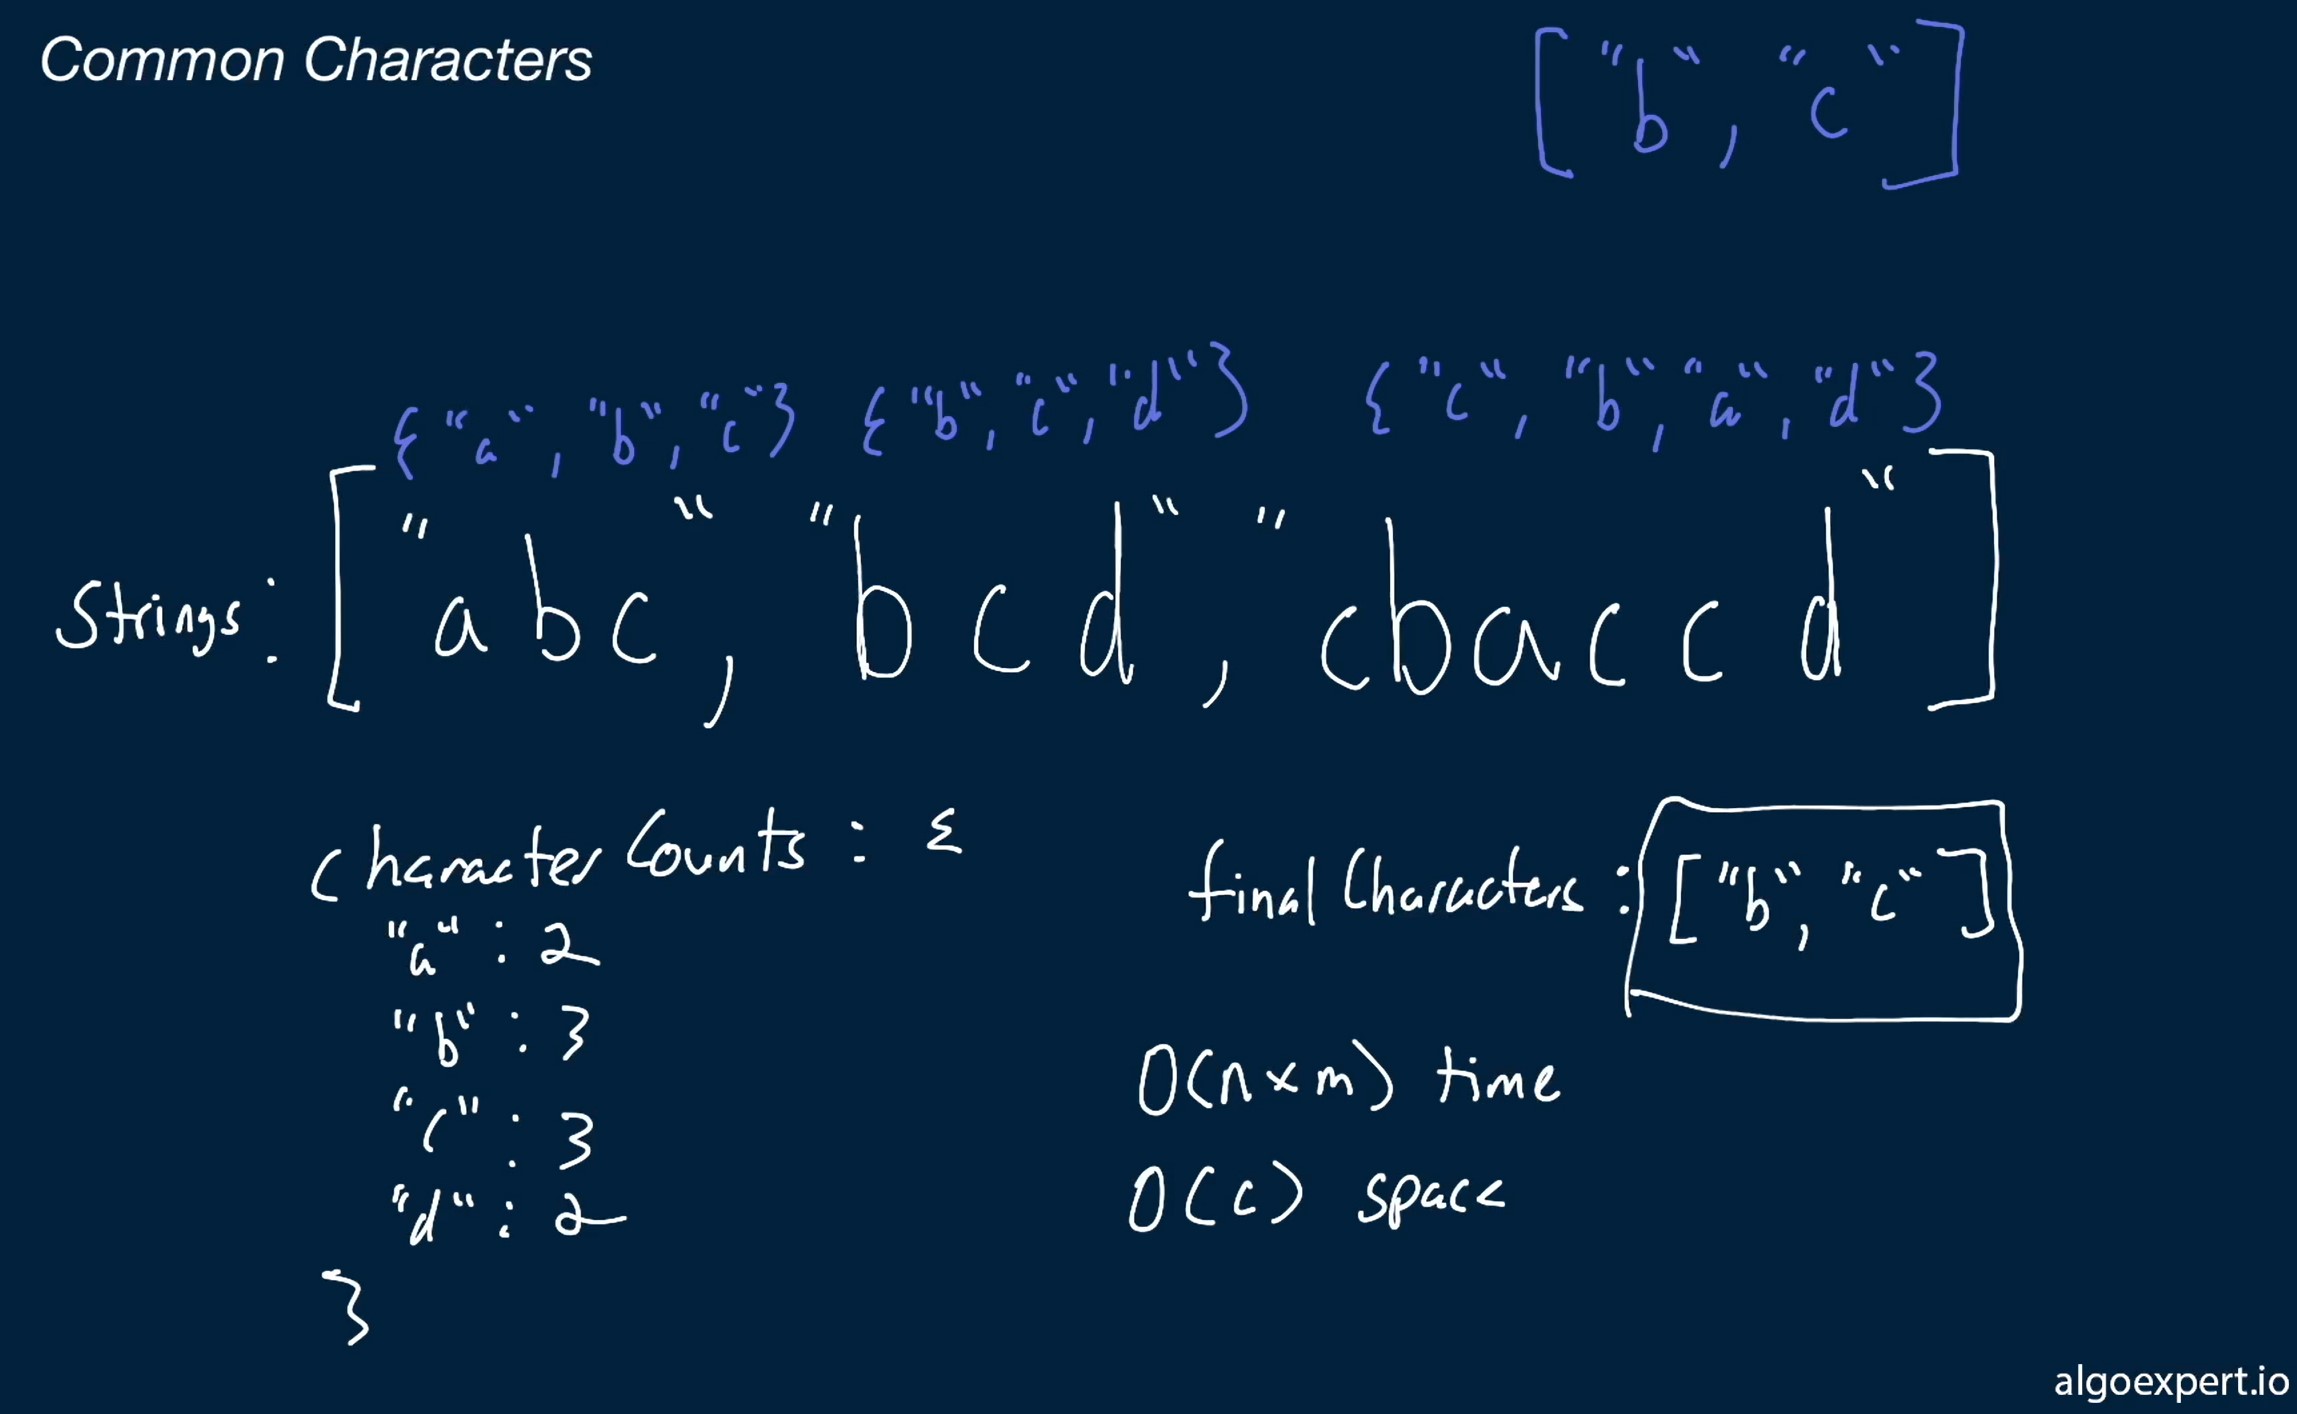 Common Characters
["b", "c"]
{"a", "b", "c"} {"b", "c", "d"} {"c", "b", "a", "d"}
Strings: ["abc", "bcd", "cbaccd"]
characterCounts: {
"a": 2
"b": 3
"c": 3
"d": 2
}
finalCharacters: ["b", "c"]
O(n x m) time
O(c) space
algoexpert.io